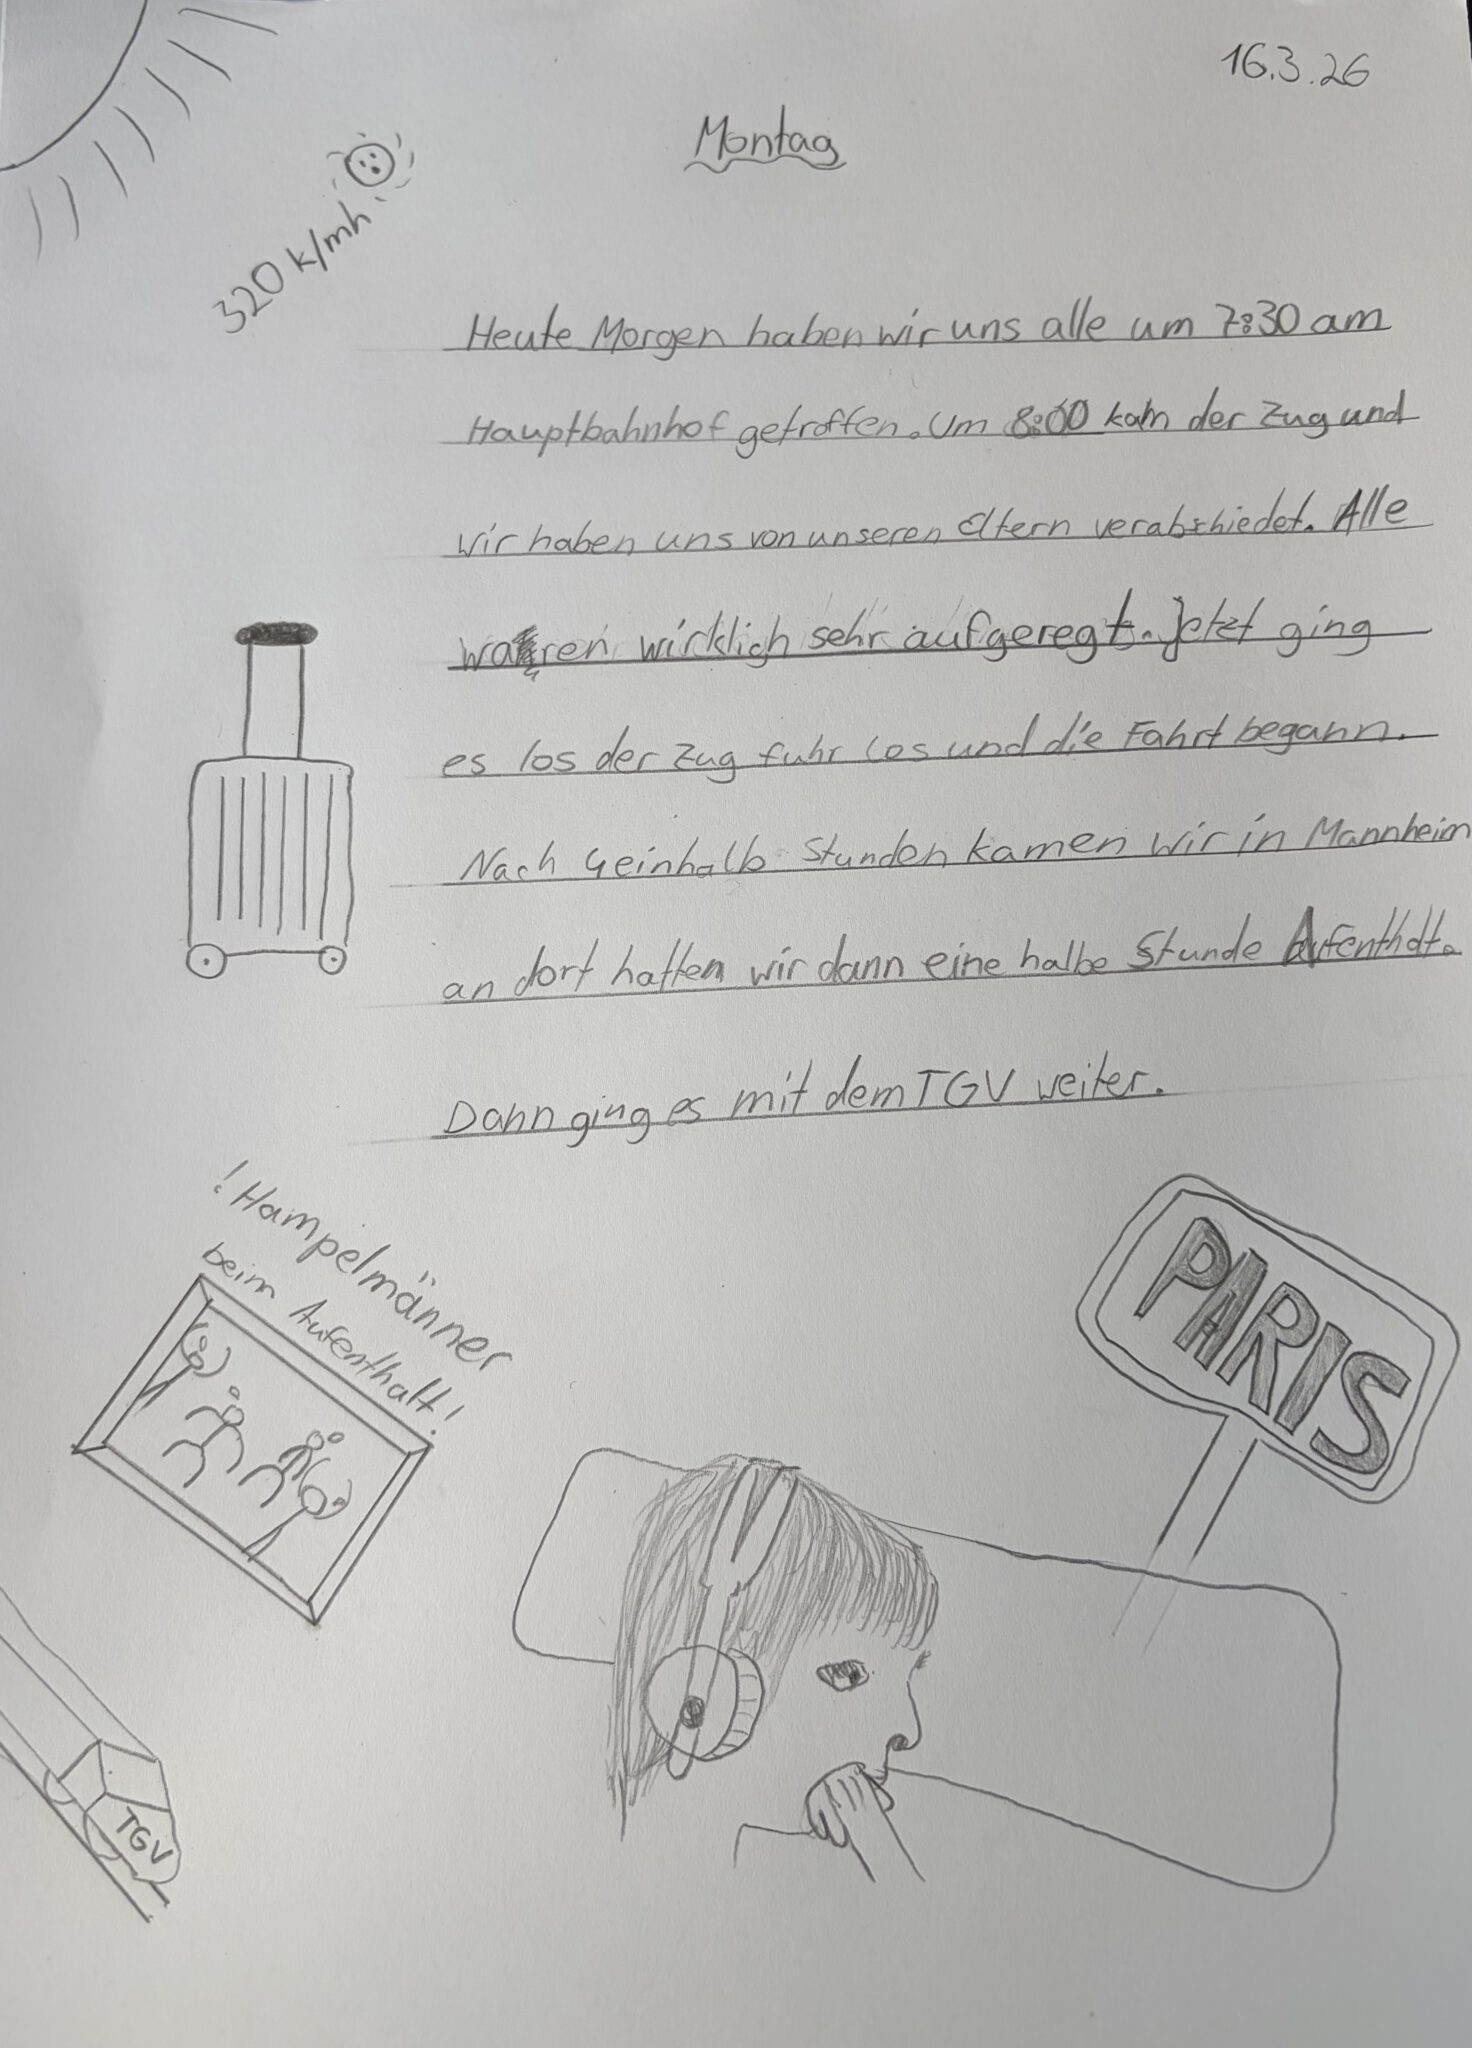 16.3.26
Montag
320 k/mh
Heute Morgen haben wir uns alle um 7:30 am
Hauptbahnhof getroffen. Um 8:00 kam der Zug und
wir haben uns von unseren Eltern verabschiedet. Alle
waren wirklich sehr aufgeregt. Jetzt ging
es los der Zug fuhr los und die Fahrt begann.
Nach 4einhalb Stunden kamen wir in Mannheim
an dort hatten wir dann eine halbe Stunde Aufenthalt.
Dann ging es mit dem TGV weiter.
! Hampelmänner
beim Aufenthalt!
PARIS
TGV